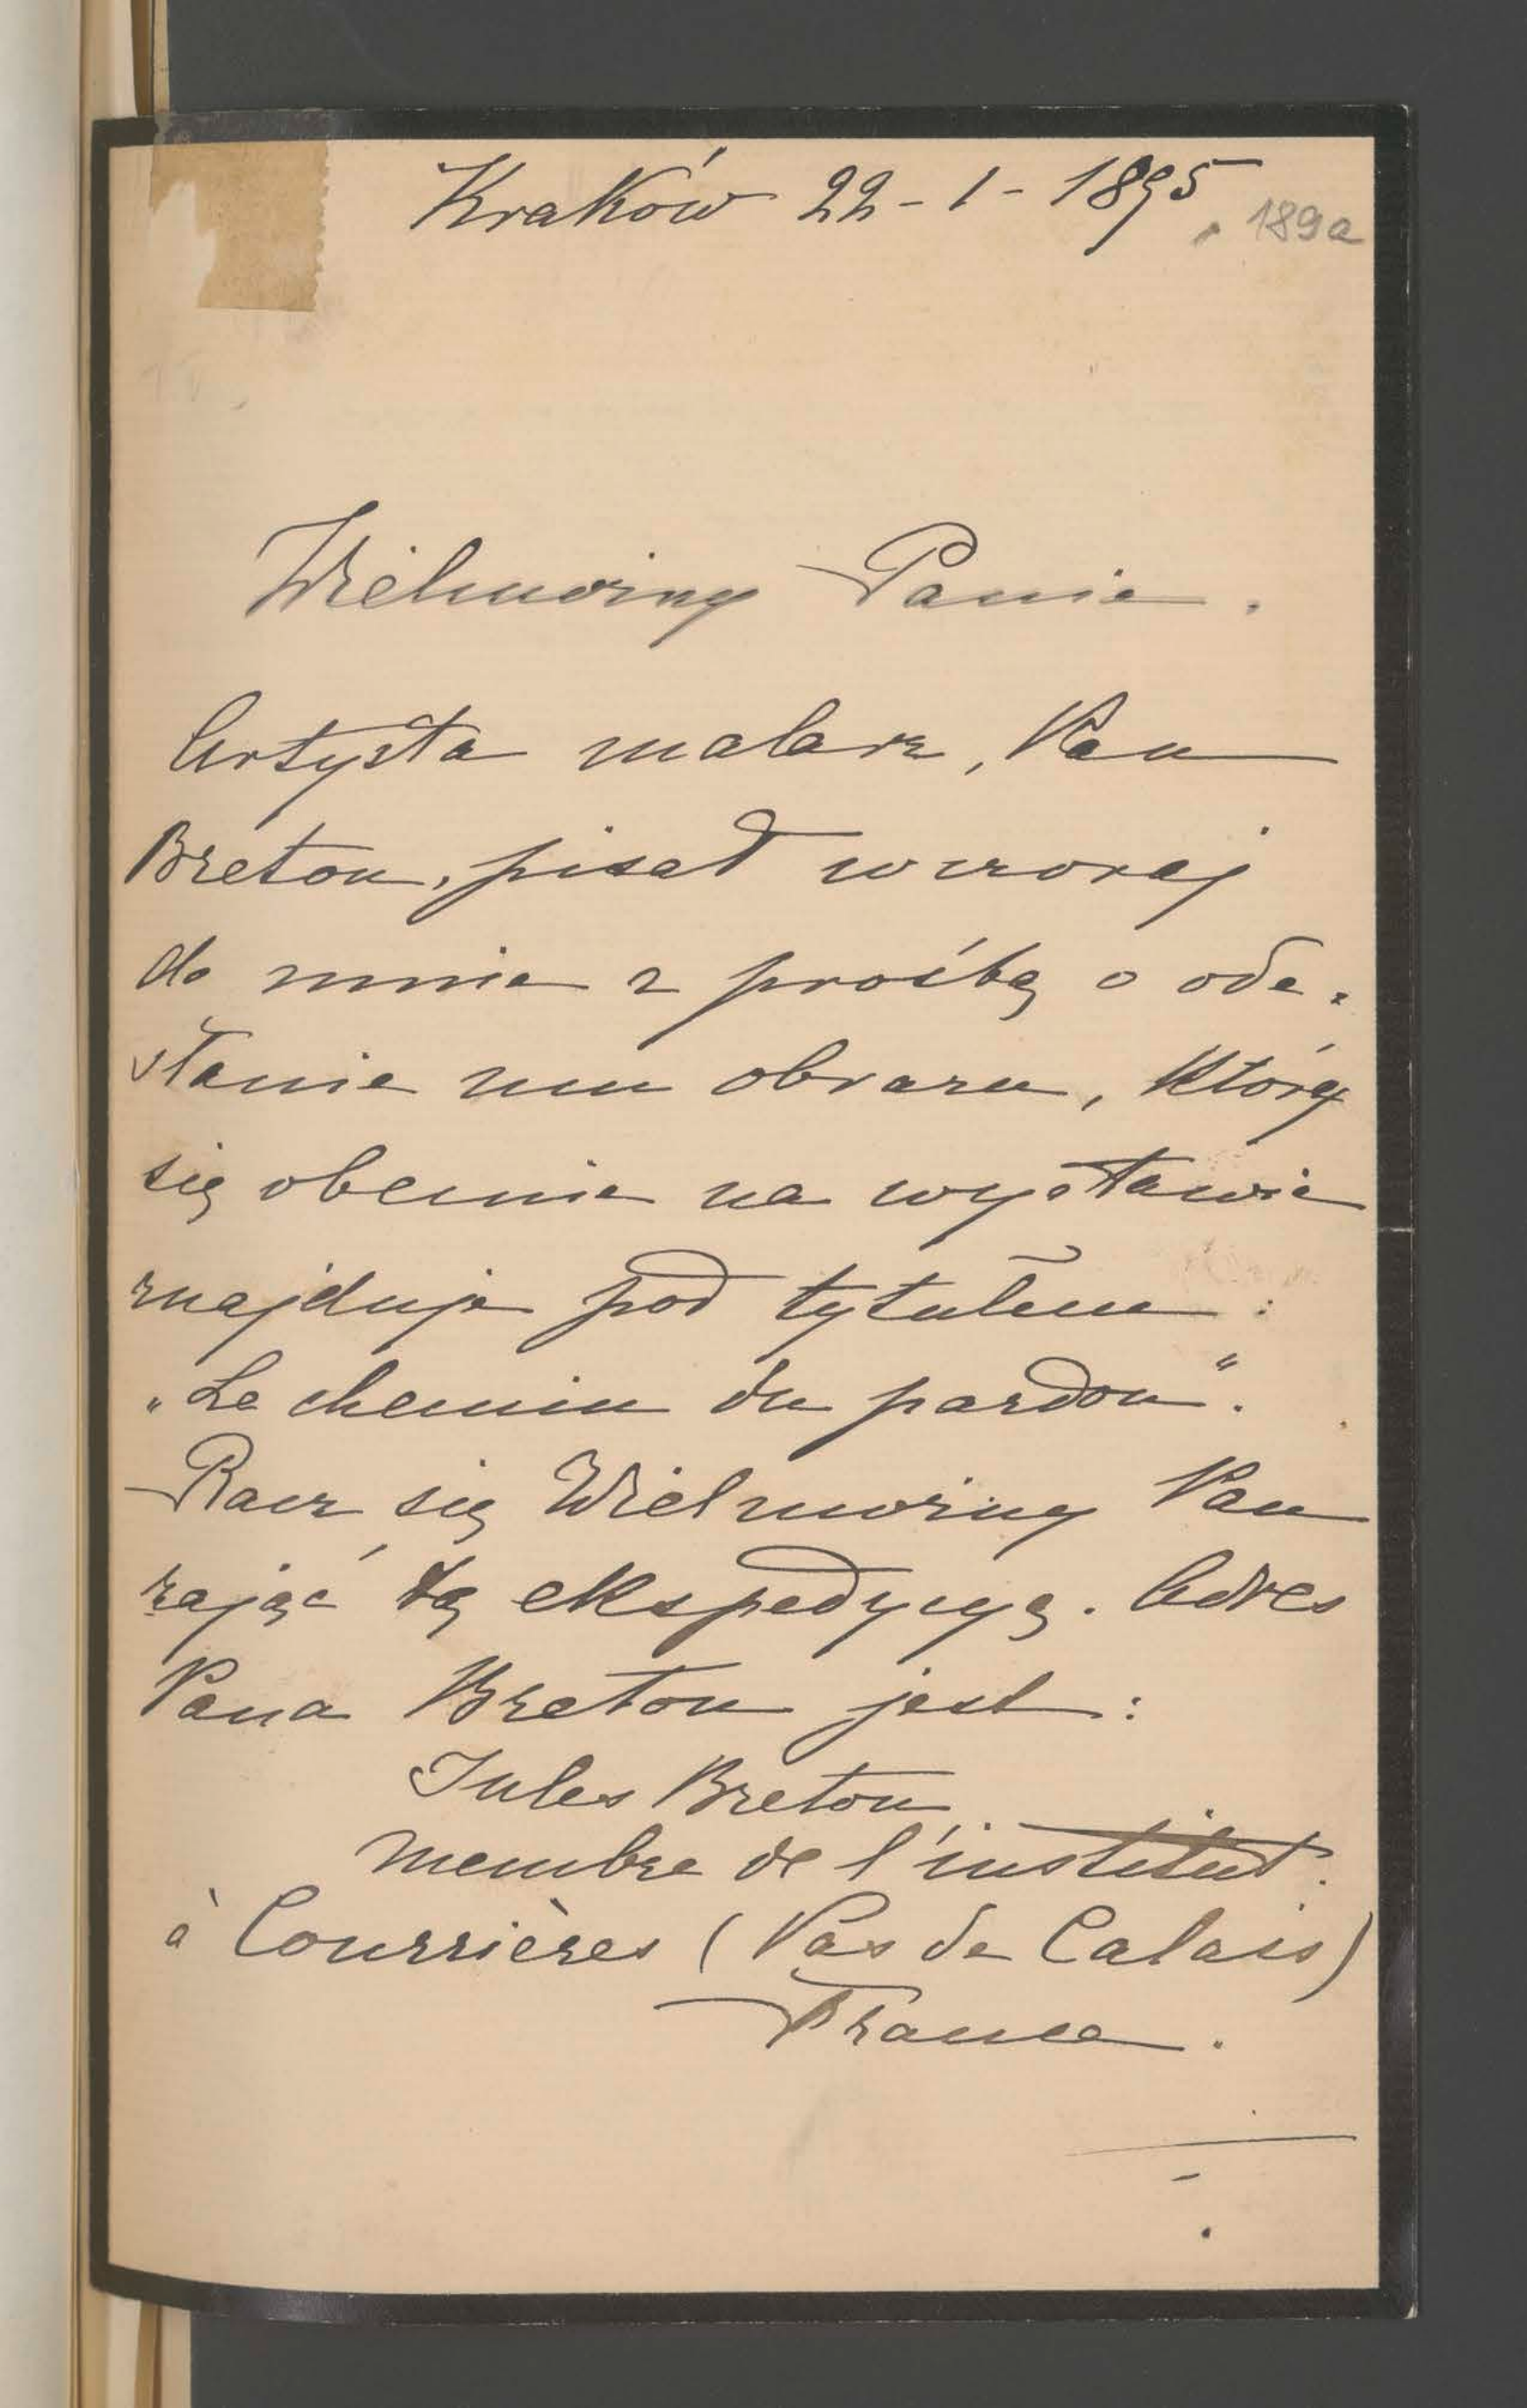 Kraków 22-1-1895.
189a
Wielmożny Panie.
Artysta malarz, Pan
Breton, pisał wczoraj
do mnie z prośbą o ode-
słanie mu obrazu, który
się obecnie na wystawie
znajduje pod tytułem:
„Le chemin du pardon“.
Racz się Wielmożny Pan
zająć tą ekspedycyą. Adres
Pana Breton jest:
Jules Breton
membre de l'institut.
à Courrières (Pas de Calais)
France.